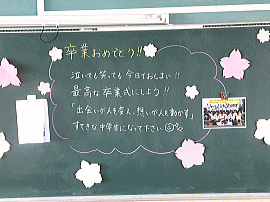 卒業おめでとう!!
泣いても笑っても今日でおしまい!!
最高な卒業式にしよう!!
「出会いが人を変え、想いが人を動かす」
すてきな中学生になって下さい